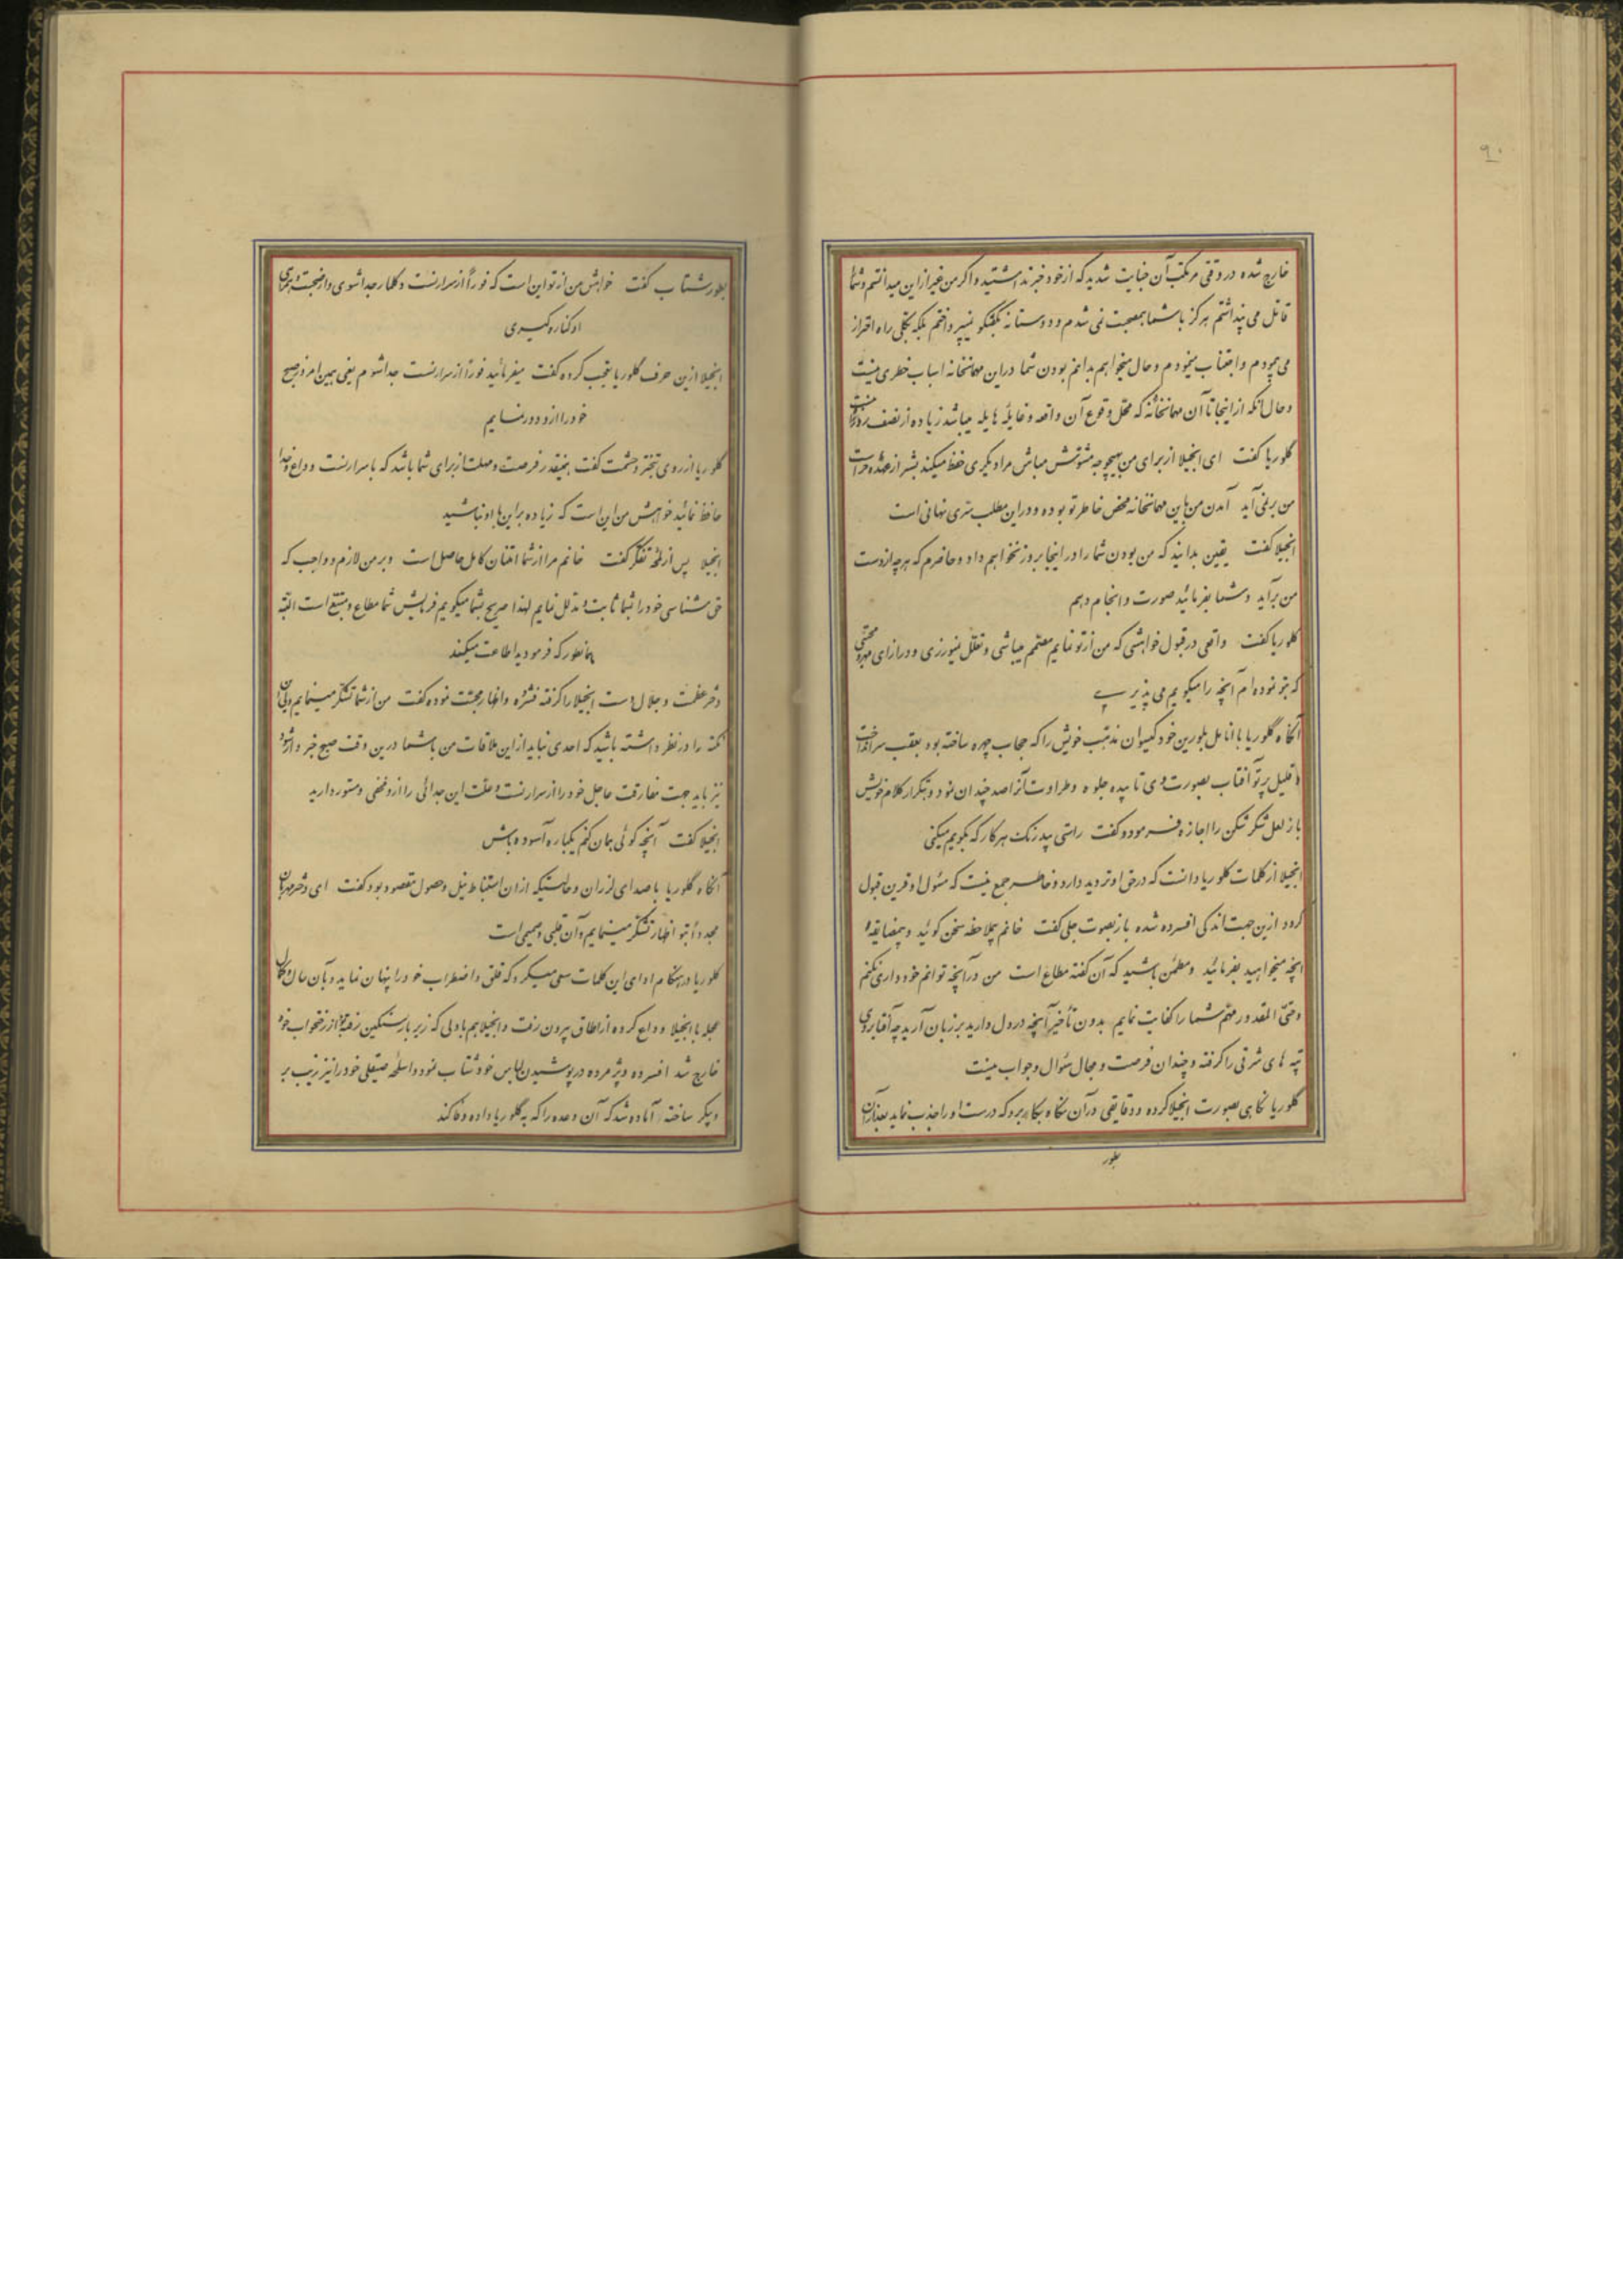 ۹۰
خارج شده در وقتی مرتکب آن خیانت شدید که از خود خبر نداشتید و اگر من غیر از این میدانستم و شما را
قاتل می پنداشتم هرگز با شما بصحبت نمی شدم و دوستانه بگفتگو نمیپرداختم بلکه بکلی راه احتراز
می پیمودم و اجتناب مینمودم و حال میخواهم بدانم بودن شما در این مهمانخانه اسباب خطری نیست
و حال آنکه از اینجا تا آن مهمانخانه که محل وقوع آن واقعه و غایلهٔ هایله میباشد زیاده از نصف روز راه نیست
گلوریا گفت ای انجیلا از برای من بهیچوجه مشوش مباش مرا دیگری حفظ میکند بشر از عهده حراست
من برنمی آید آمدن من باین مهمانخانه محض خاطر تو بوده و در این مطلب سرّی نهانی است
انجیلا گفت یقین بدانید که من بودن شما را در اینجا بروز نخواهم داد و حاضرم که هر چه از دست
من برآید و شما بفرمائید صورت و انجام دهم
گلوریا گفت واقعی در قبول خواهشی که من از تو نمایم مصمم میباشی و تعلل نمیورزی و در ازای محبتی
که بتو نموده ام آنچه را میگویم می پذیری
آنگاه گلوریا با انامل بلورین خود گیسوان مذهّب خویش را که حجاب چهره ساخته بود بعقب سر انداخت
و قلیل پرتو آفتاب بصورت وی تابیده جلوه و طراوت آنرا صد چندان نمود و بتکرار کلام خویش
باز لعل شکر شکن را اجازه فرمود و گفت راستی بیدرنگ هر کار که بگویم میکنی
انجیلا از کلمات گلوریا دانست که در حق او تردید دارد و خاطر جمع نیست که مسئول او قرین قبول
گردد ازین جهت اندکی افسرده شده باز بصوت جلی گفت خانم بملاحظه سخن گوئید و بیمضایقه
آنچه میخواهید بفرمائید و مطمئن باشید که آن گفته مطاع است من در آنچه توانم خودداری نکنم
و حتی المقدور مهم شما را کفایت نمایم بدون تأخیر آنچه در دل دارید بر زبان آرید چه آفتاب روی
تپه های شرقی را گرفته و چندان فرصت و مجال سئوال و جواب نیست
گلوریا نگاهی بصورت انجیلا کرده و دقایقی در آن نگاه بکار برد که درست او را جذب نماید بعد از آن
بطور
بطور شتاب گفت خواهش من از تو این است که فوراً از سرارنست و کلارا جدا شوی و از صحبت و همراهی
او کناره گیری
انجیلا ازین حرف گلوریا تعجب کرده گفت میفرمائید فوراً از سرارنست جدا شوم یعنی همین امروز صبح
خود را از او دور نمایم
گلوریا از روی تبختر و حشمت گفت همینقدر فرصت و مهلت از برای شما باشد که با سرارنست وداع و خدا
حافظ نمائید خواهش من این است که زیاده بر این با او نباشید
انجیلا پس از لمحه تفکر گفت خانم مرا از شما امتنان کامل حاصل است و بر من لازم و واجب که
حق شناسی خود را بشما ثابت و مدلل نمایم لهذا صریح بشما میگویم فرمایش شما مطاع و متبع است البته
همانطور که فرمودید اطاعت میکنم
دختر عظمت و جلال دست انجیلا را گرفته فشرده و اظهار محبت نموده گفت من از شما تشکر مینمایم ولی این
نکته را در نظر داشته باشید که احدی نباید از این ملاقات من با شما درین وقت صبح خبردار شود
نیز باید جهت مفارقت عاجل خود را از سرارنست و علت این جدائی را از او مخفی و مستور دارید
انجیلا گفت آنچه گوئی بمان کنم یکباره آسوده باش
آنگاه گلوریا با صدای لرزان و حالتیکه از آن استنباط نیل و حصول مقصود بود گفت ای دختر مهربان
مجدداً بتو اظهار تشکر مینمایم و آن قلبی و صمیمی است
گلوریا در هنگام ادای این کلمات سعی میکرد که قلق و اضطراب خود را پنهان نماید و بآن حال
عجله با انجیلا وداع کرده از اطاق بیرون رفت و انجیلا هم با دلی که زیر بار سنگین از رختخواب خود
خارج شد افسرده و پژمرده در پوشیدن لباس خود شتاب نمود و اسلحه صیقلی خود را نیز زیب بر
و پیکر ساخته آماده شد که آن وعده را که به گلوریا داده وفا کند